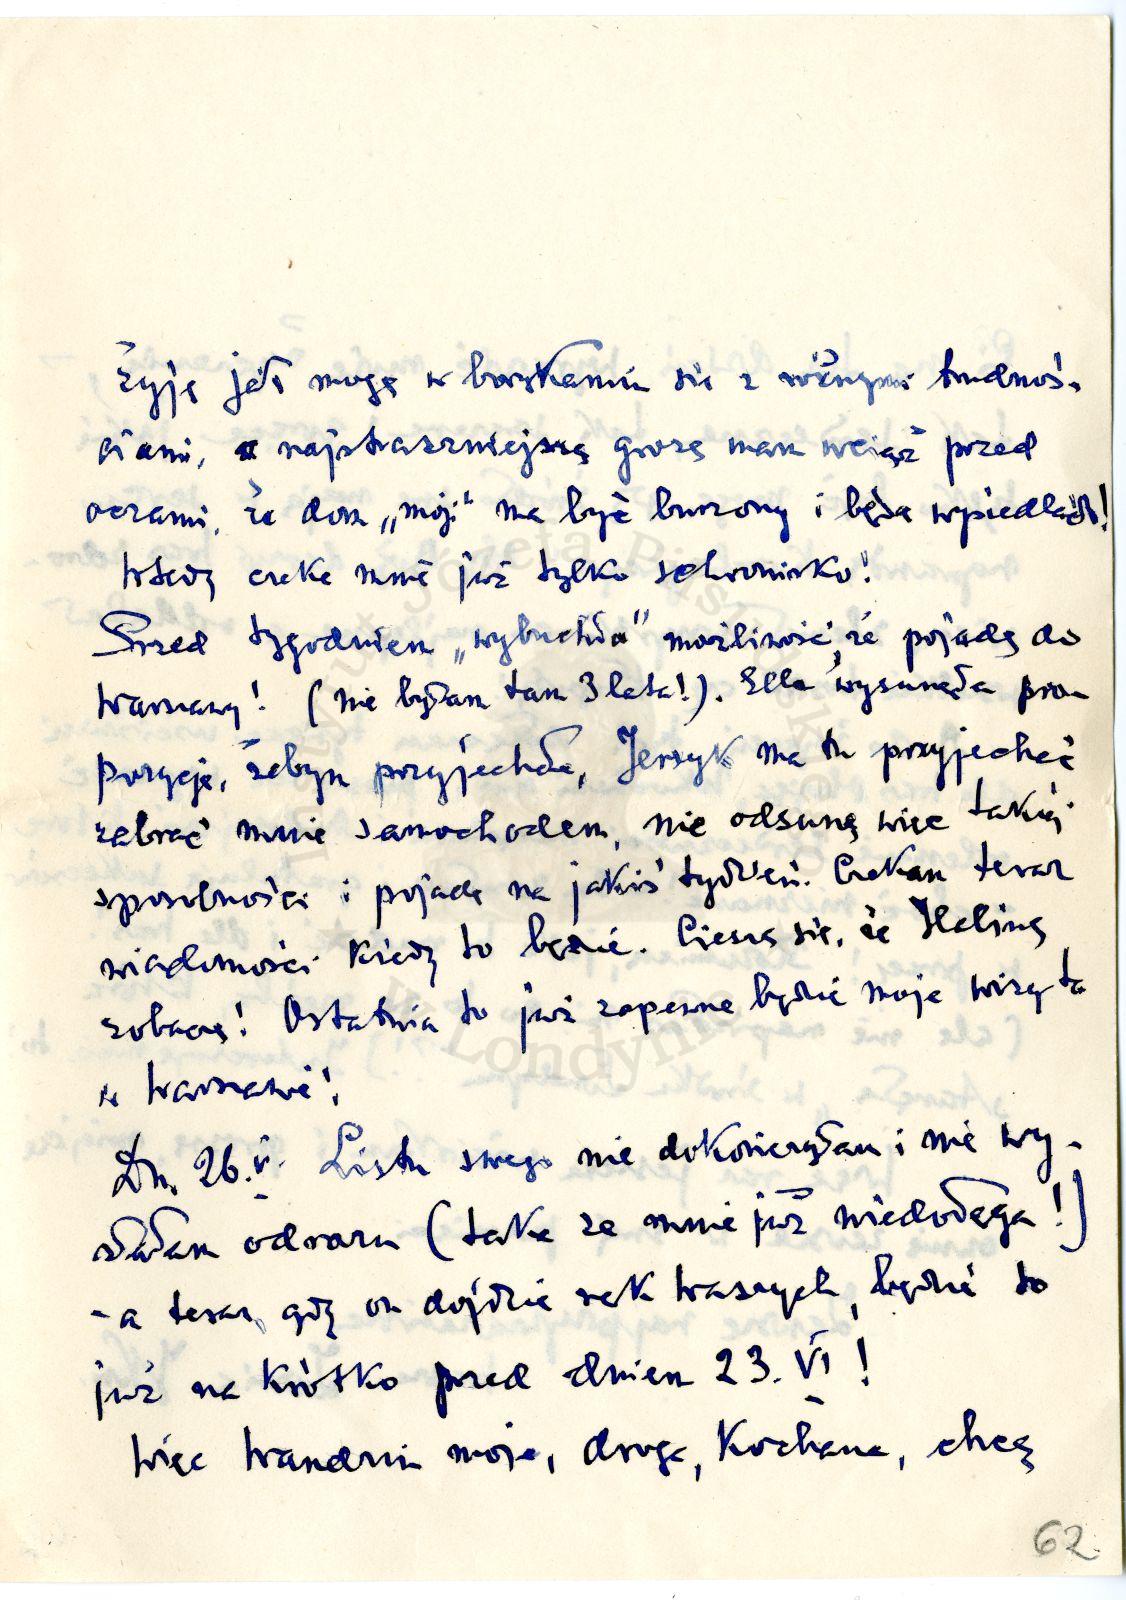 Żyję jeśli mogę w borykaniu się z różnymi trudnoś-
ciami, a najstraszniejszą grozę mam wciąż przed
oczami, że dom „mój" ma być burzony i będą wysiedlać!
Wtedy czeka mnie już tylko schronisko!
Przed tygodniem „wybuchła" możliwość, że pojadę do
Warszawy! (nie byłam tam 3 lata!). Ella wysunęła pro-
pozycję, żebym przyjechała, Jerzyk ma tu przyjechać
zabrać mnie samochodem, nie odsunę więc takiej
sposobności i pojadę na jakiś tydzień. Czekam teraz
wiadomości kiedy to będzie. Cieszę się, że Halinę
zobaczę! Ostatnia to już zapewne będzie moja wizyta
w Warszawie!
Dn. 26.V. Listu swego nie dokończyłam i nie wy-
słałam od razu (taka ze mnie już niedołęga!)
- a teraz, gdy on dojdzie rąk Waszych, będzie to
już na krótko przed dniem 23.VI!
Więc Wandziu moja, droga, Kochana, chcę
62.
Instytut Józefa Piłsudskiego
w Londynie